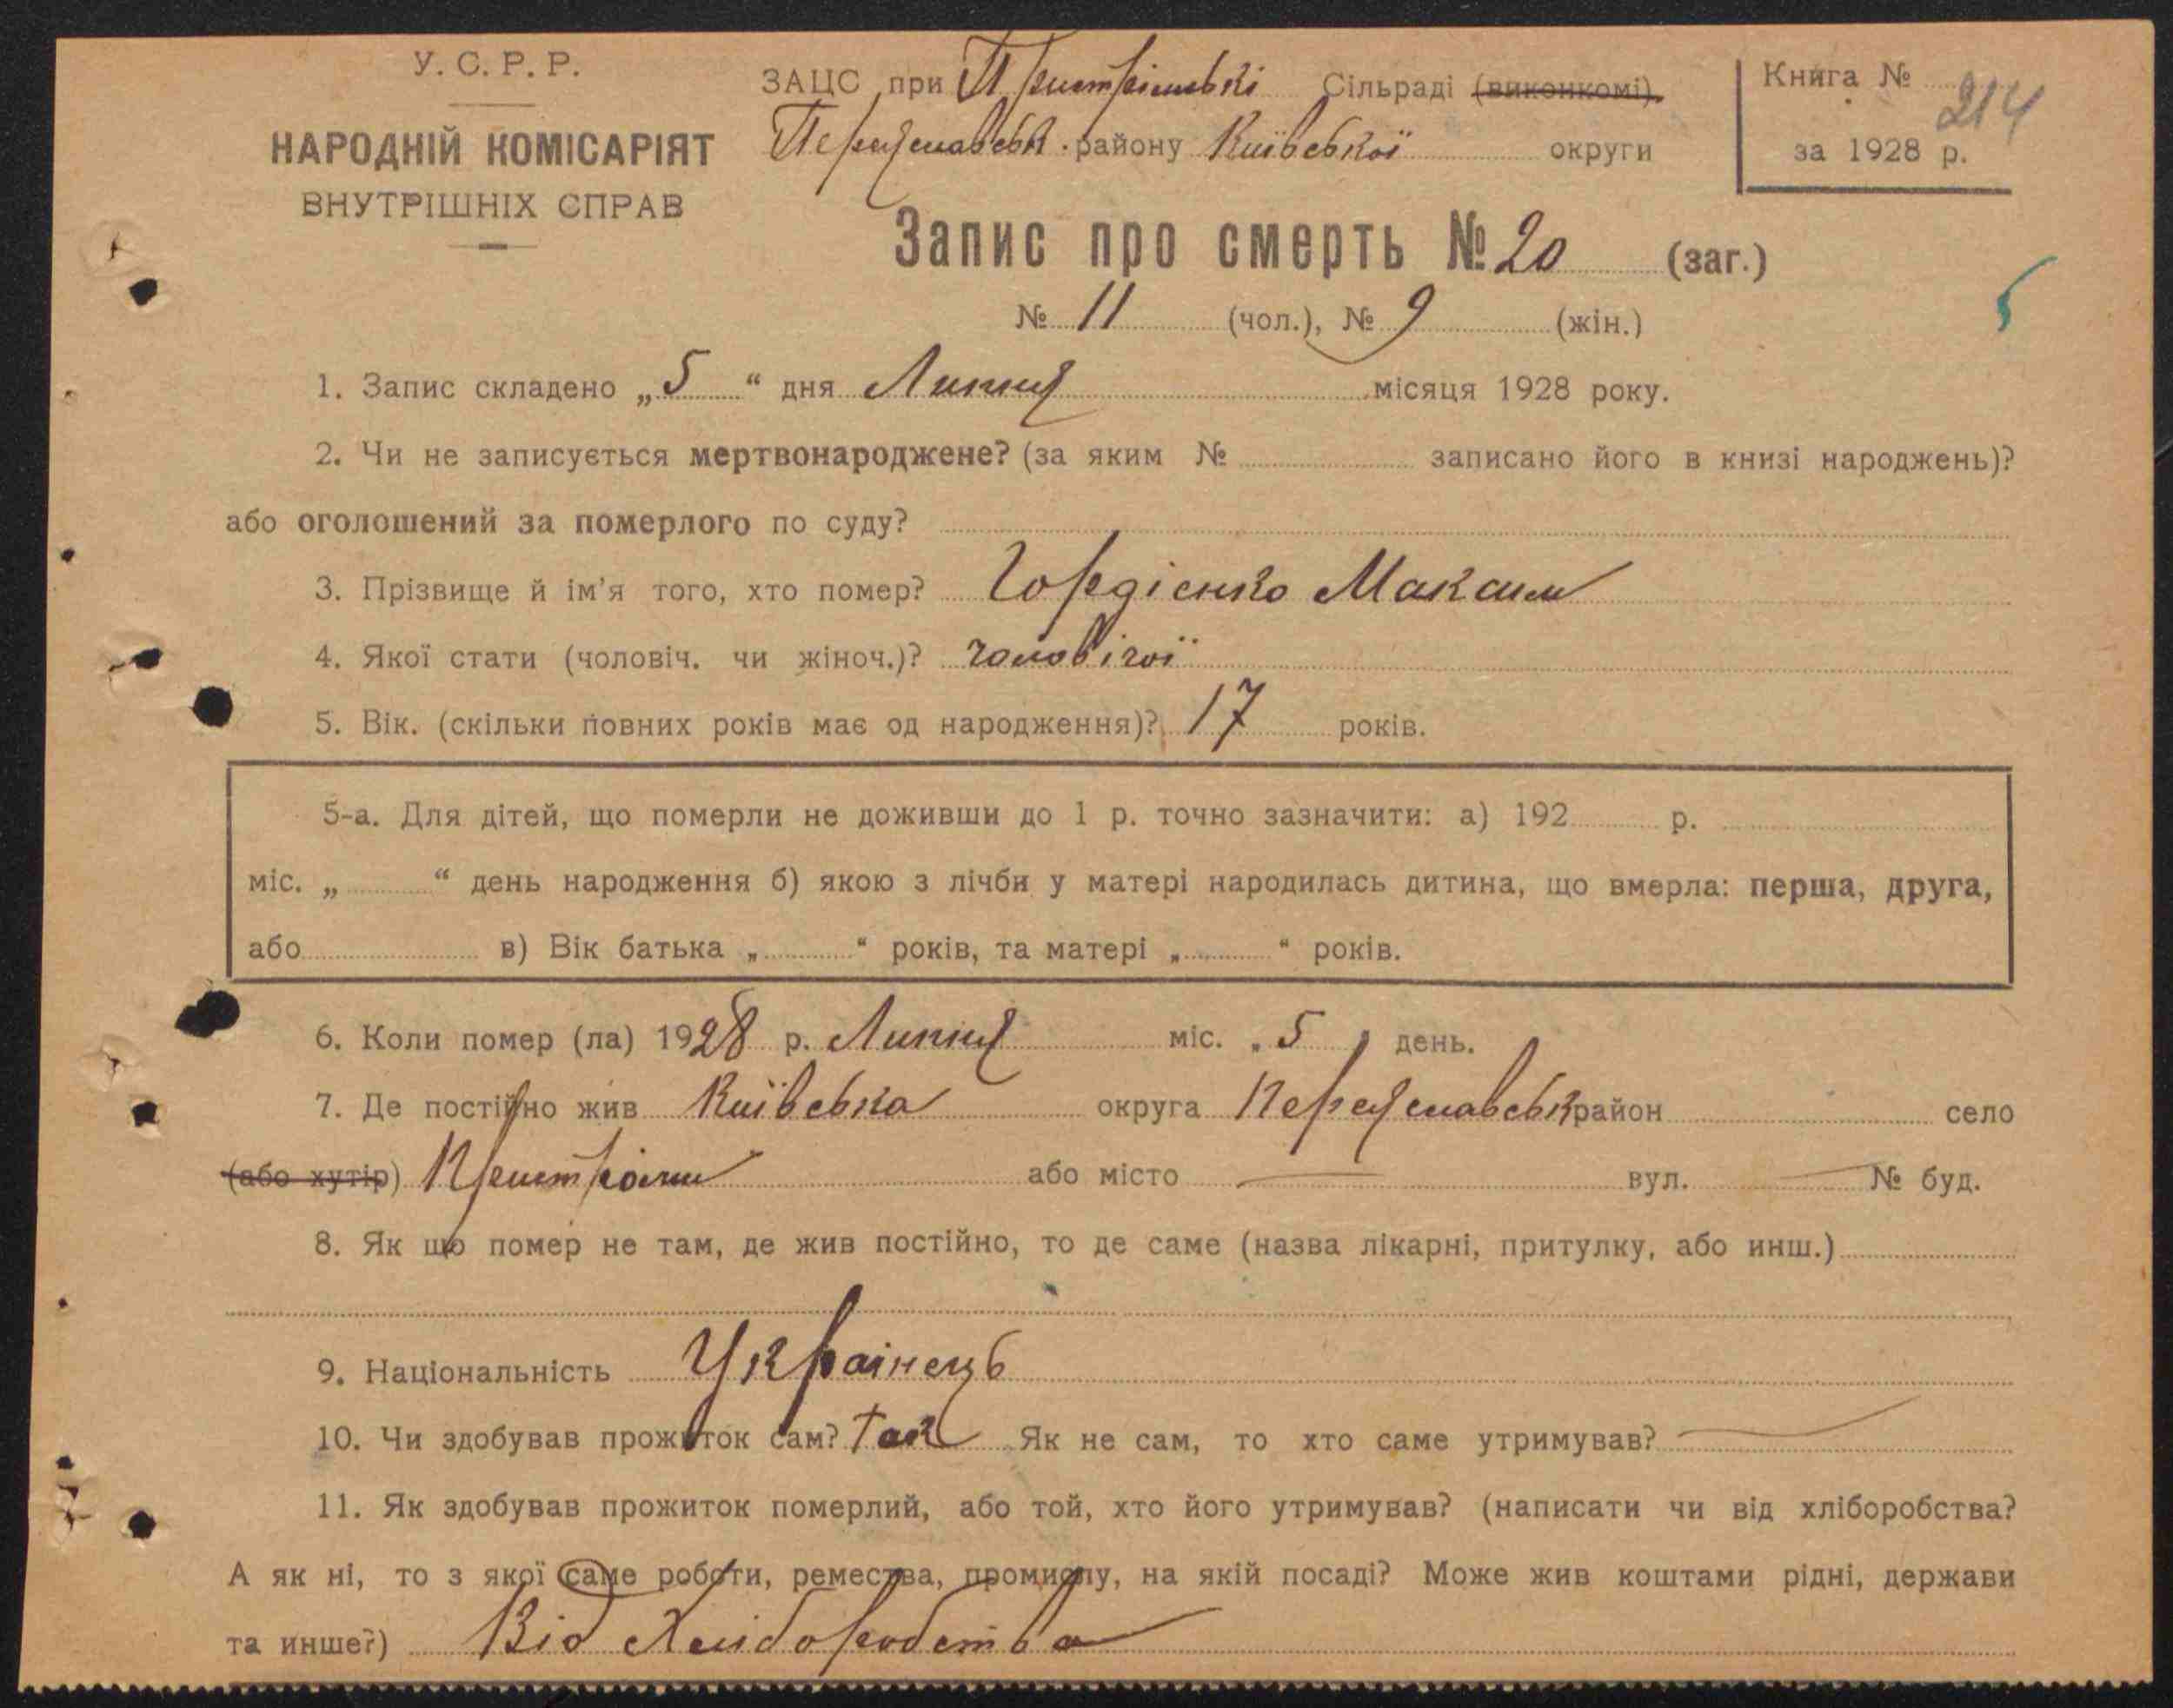 У. С. Р. Р.
НАРОДНІЙ КОМІСАРІЯТ
ВНУТРІШНІХ СПРАВ
ЗАЦС при Пристрімській Сільраді (виконкомі).
Переяславськ. району Київської округи
Книга № 214
за 1928 р.
Запис про смерть № 20 (заг.)
№ 11 (чол.), № 9 (жін.)
1. Запис складено „ 5 “ дня Липня місяця 1928 року.
2. Чи не записується мертвонароджене? (за яким № записано його в книзі народжень)?
або оголошений за померлого по суду?
3. Прізвище й ім'я того, хто помер? Гордієнко Максим
4. Якої стати (чоловіч. чи жіноч.)? чоловічої
5. Вік. (скільки повних років має од народження)? 17 років.
5-а. Для дітей, що померли не доживши до 1 р. точно зазначити: а) 192 р.
міс. „ “ день народження б) якою з лічби у матері народилась дитина, що вмерла: перша, друга,
або в) Вік батька „ “ років, та матері „ “ років.
6. Коли помер (ла) 1928 р. Липня міс. „ 5 „ день.
7. Де постійно жив Київська округа Переяславськ район село
(або хутір) Пристроми або місто — вул. — № буд.
8. Як що помер не там, де жив постійно, то де саме (назва лікарні, притулку, або инш.)
9. Національність Українець
10. Чи здобував прожиток сам? Так Як не сам, то хто саме утримував? —
11. Як здобував прожиток померлий, або той, хто його утримував? (написати чи від хліборобства?
А як ні, то з якої саме роботи, ремества, промислу, на якій посаді? Може жив коштами рідні, держави
та инше?) Від Хліборобства